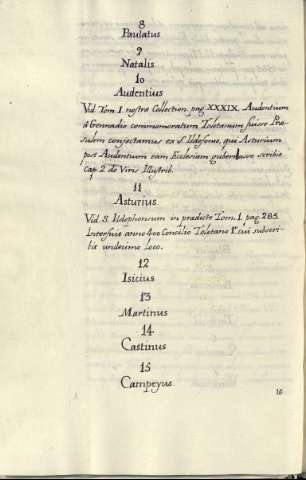 8
Paulatus
9
Natalis
10
Audentius
Vid. Tom. I. nostræ Collection. pag. XXXIX. Audentum
á Gennadio commemoratum Toletanum fuisse Præ-
sulem conjectamus ex S. Ildefonso, qui Asturium
post Audentium eam Ecclesiam gubernasse scribit
cap. 2. de Viris Illustrib.
11
Asturius
Vid. S. Ildephonsum in prædicto Tom. I. pag. 285.
Interfuit anno 400 Concilio Toletano 1º cui subscri-
bit undecimo loco.
12
Isicius
13
Martinus
14
Castinus
15
Campeyus